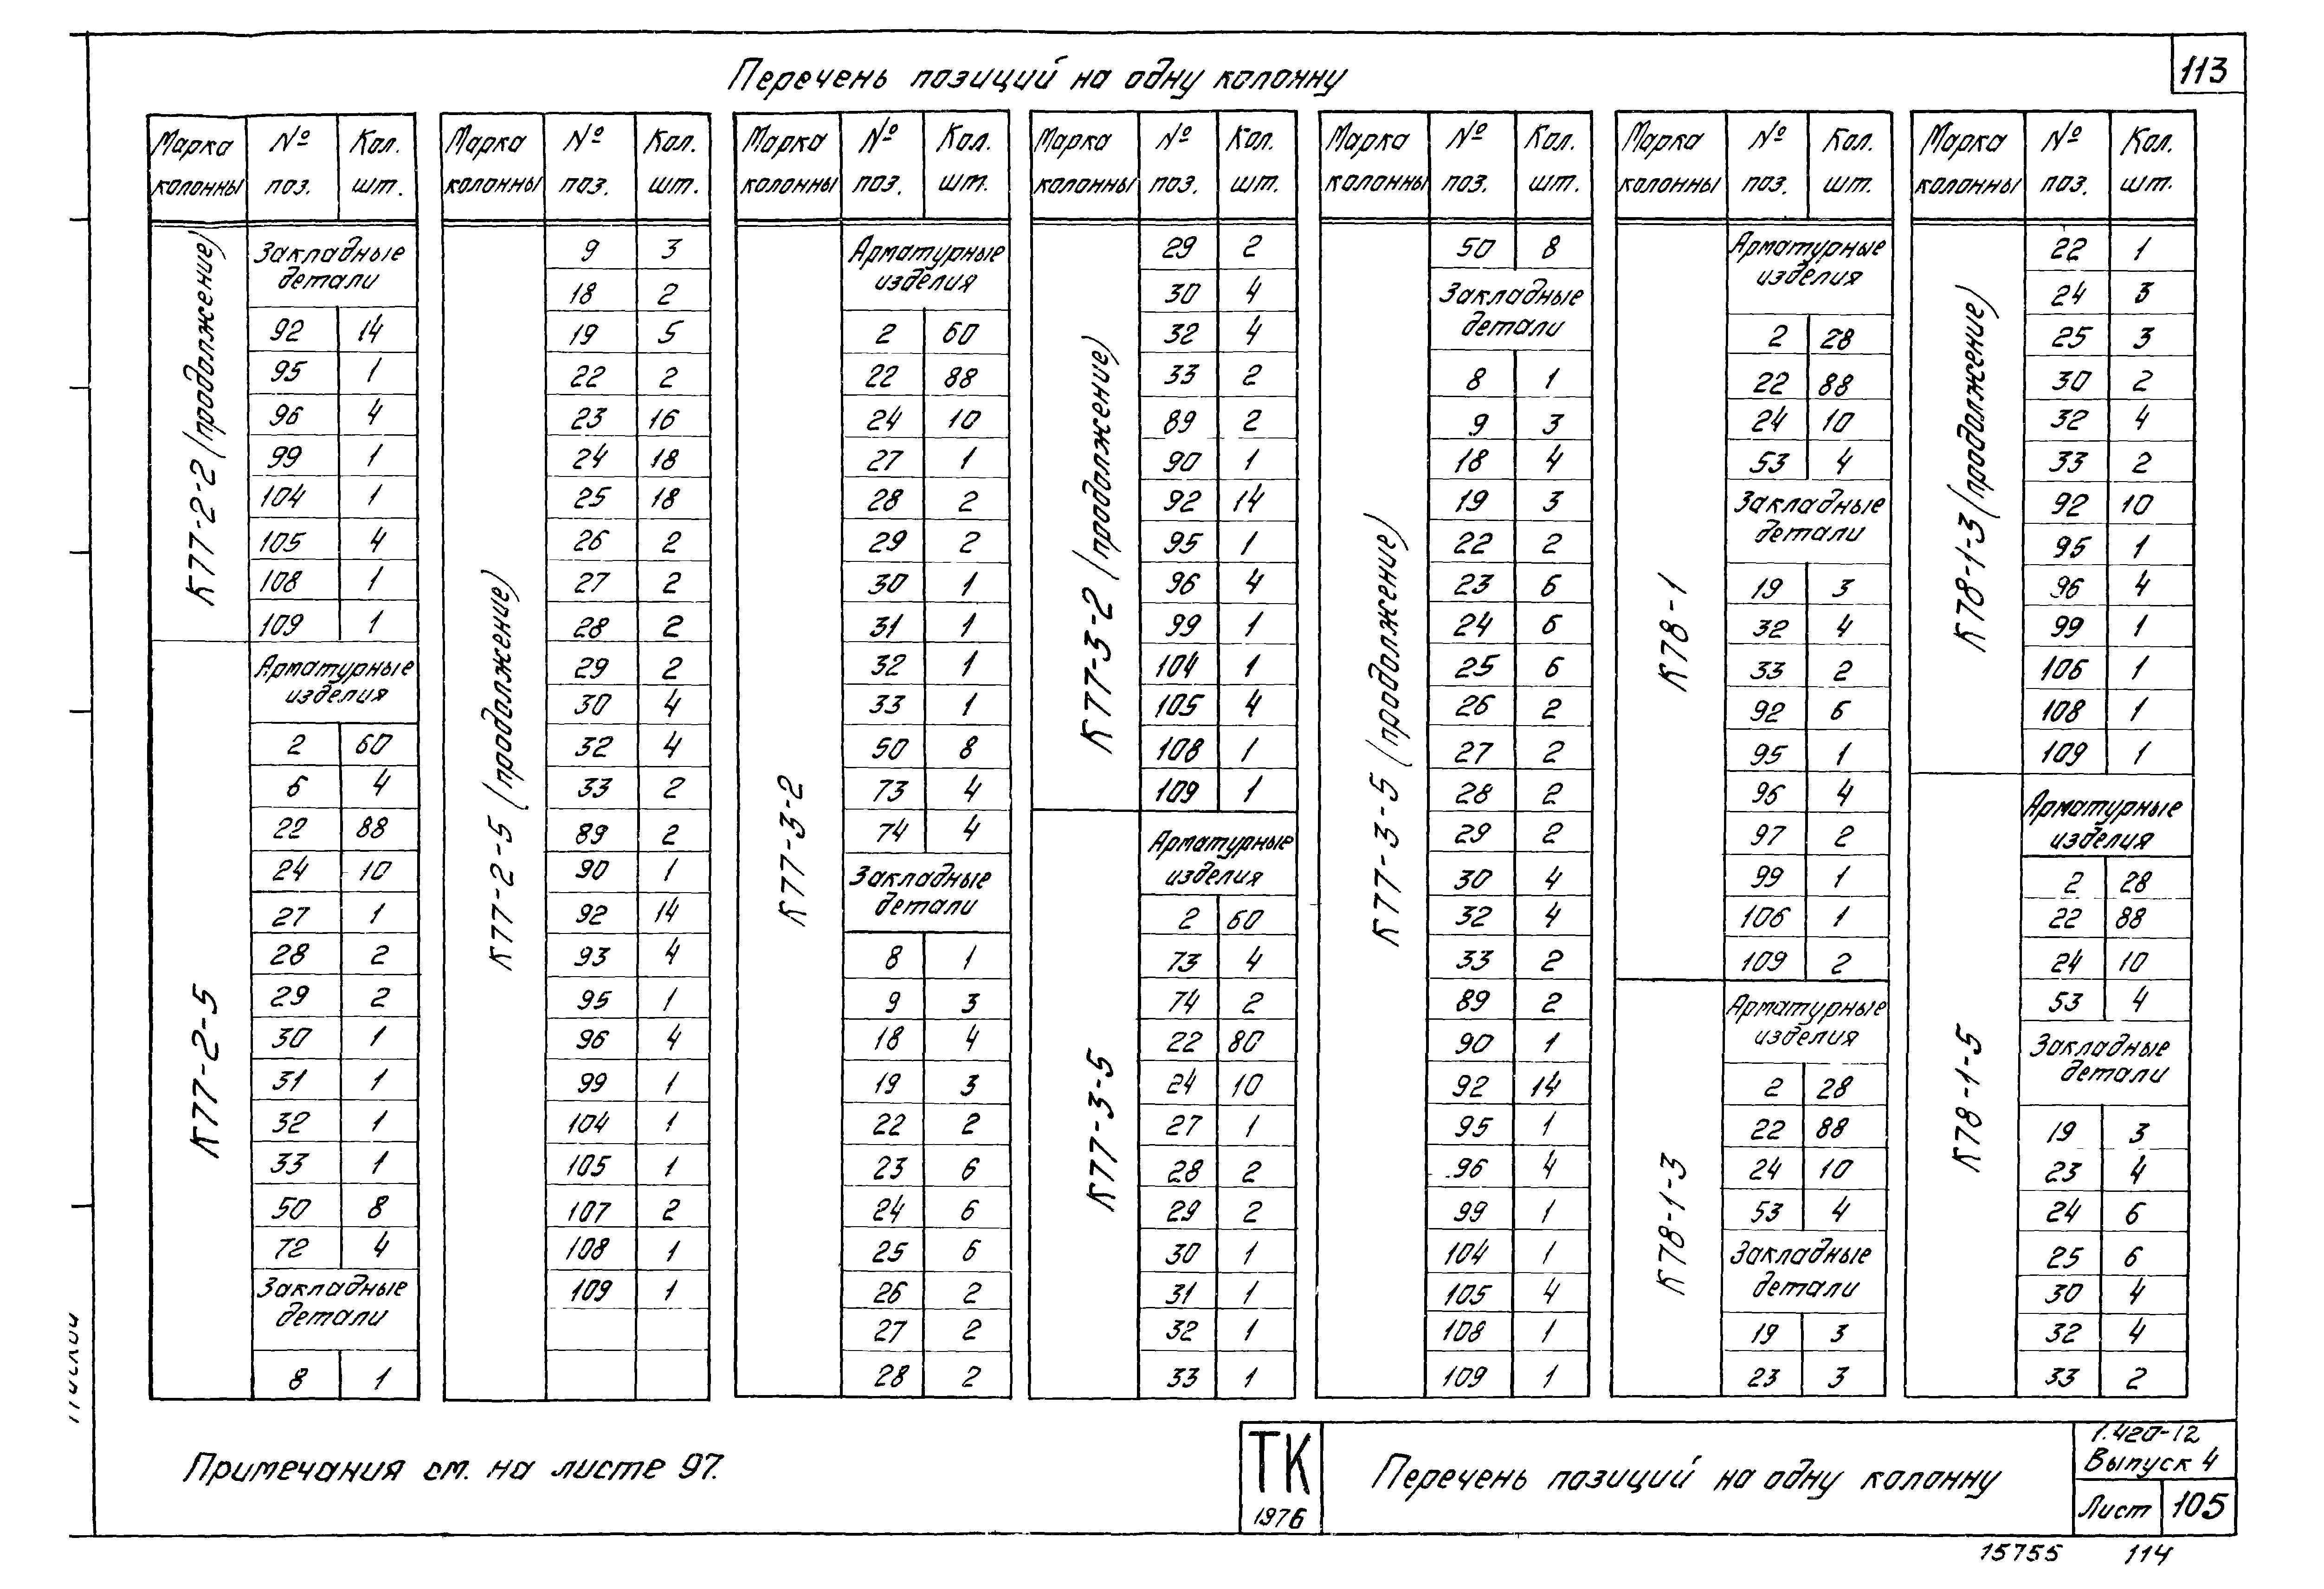 113
Перечень позиций на одну колонну
Марка колонны № поз. Кол. шт.
К77-2-2 (продолжение)
Закладные детали
92 14
95 1
96 4
99 1
104 1
105 4
108 1
109 1
К77-2-5
Арматурные изделия
2 60
6 4
22 88
24 10
27 1
28 2
29 2
30 1
31 1
32 1
33 1
50 8
72 4
Закладные детали
8 1
Марка колонны № поз. Кол. шт.
К77-2-5 (продолжение)
9 3
18 2
19 5
22 2
23 16
24 18
25 18
26 2
27 2
28 2
29 2
30 4
32 4
33 2
89 2
90 1
92 14
93 4
95 1
96 4
99 1
104 1
105 1
107 2
108 1
109 1
Марка колонны № поз. Кол. шт.
К77-3-2
Арматурные изделия
2 60
22 88
24 10
27 1
28 2
29 2
30 1
31 1
32 1
33 1
50 8
73 4
74 4
Закладные детали
8 1
9 3
18 4
19 3
22 2
23 6
24 6
25 6
26 2
27 2
28 2
Марка колонны № поз. Кол. шт.
К77-3-2 (продолжение)
29 2
30 4
32 4
33 2
89 2
90 1
92 14
95 1
96 4
99 1
104 1
105 4
108 1
109 1
К77-3-5
Арматурные изделия
2 60
73 4
74 2
22 80
24 10
27 1
28 2
29 2
30 1
31 1
32 1
33 1
Марка колонны № поз. Кол. шт.
К77-3-5 (продолжение)
50 8
Закладные детали
8 1
9 3
18 4
19 3
22 2
23 6
24 6
25 6
26 2
27 2
28 2
29 2
30 4
32 4
33 2
89 2
90 1
92 14
95 1
96 4
99 1
104 1
105 4
108 1
109 1
Марка колонны № поз. Кол. шт.
К78-1
Арматурные изделия
2 28
22 88
24 10
53 4
Закладные детали
19 3
32 4
33 2
92 6
95 1
96 4
97 2
99 1
106 1
109 2
К78-1-3
Арматурные изделия
2 28
22 88
24 10
53 4
Закладные детали
19 3
23 3
Марка колонны № поз. Кол. шт.
К78-1-3 (продолжение)
22 1
24 3
25 3
30 2
32 4
33 2
92 10
95 1
96 4
99 1
106 1
108 1
109 1
К78-1-5
Арматурные изделия
2 28
22 88
24 10
53 4
Закладные детали
19 3
23 4
24 6
25 6
30 4
32 4
33 2
Примечания см. на листе 97.
ТК
1976
Перечень позиций на одну колонну
1.420-12
Выпуск 4
Лист 105
15755 114